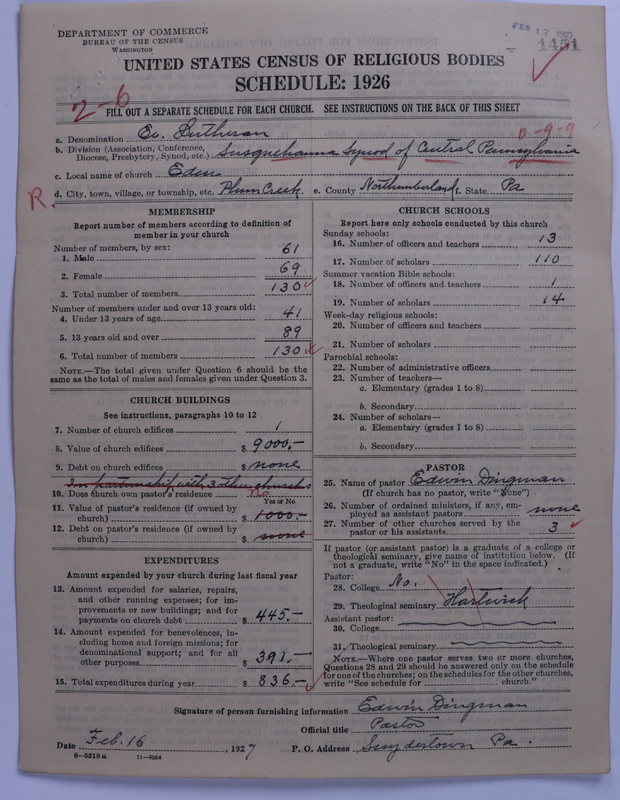 DEPARTMENT OF COMMERCE
BUREAU OF THE CENSUS
WASHINGTON
FEB 17 1927
1451
UNITED STATES CENSUS OF RELIGIOUS BODIES
SCHEDULE: 1926
2-6
FILL OUT A SEPARATE SCHEDULE FOR EACH CHURCH. SEE INSTRUCTIONS ON THE BACK OF THIS SHEET
a. Denomination Ev. Lutheran
0-9-9
b. Division (Association, Conference, Diocese, Presbytery, Synod, etc.) Susquehanna Synod of Central Pennsylvania
c. Local name of church Eden
R.
d. City, town, village, or township, etc. Plum Creek e. County Northumberland f. State Pa
MEMBERSHIP
Report number of members according to definition of
member in your church
Number of members, by sex:
1. Male 61
2. Female 69
3. Total number of members 130
Number of members under and over 13 years old:
4. Under 13 years of age 41
5. 13 years old and over 89
6. Total number of members 130
NOTE.—The total given under Question 6 should be
same as the total of males and females given under Question 3.
CHURCH BUILDINGS
See instructions, paragraphs 10 to 12
7. Number of church edifices 1
8. Value of church edifices $ 9000.—
9. Debt on church edifices $ none
In partnership with 3 other churches
10. Does church own pastor's residence No
Yes or No
11. Value of pastor's residence (if owned by
church) $ 1000.—
12. Debt on pastor's residence (if owned by
church) $ none
EXPENDITURES
Amount expended by your church during last fiscal year
13. Amount expended for salaries, repairs,
and other running expenses; for im-
provements or new buildings; and for
payments on church debt $ 445.—
14. Amount expended for benevolences, in-
cluding home and foreign missions; for
denominational support; and for all
other purposes $ 391.—
15. Total expenditures during year $ 836.—
CHURCH SCHOOLS
Report here only schools conducted by this church
Sunday schools:
16. Number of officers and teachers 13
17. Number of scholars 110
Summer vacation Bible schools:
18. Number of officers and teachers 1
19. Number of scholars 14
Week-day religious schools:
20. Number of officers and teachers
21. Number of scholars
Parochial schools:
22. Number of administrative officers
23. Number of teachers—
a. Elementary (grades 1 to 8)
b. Secondary
24. Number of scholars—
a. Elementary (grades 1 to 8)
b. Secondary
PASTOR
25. Name of pastor Edwin Dingman
(If church has no pastor, write "None")
26. Number of ordained ministers, if any, em-
ployed as assistant pastors none
27. Number of other churches served by the
pastor or his assistants 3
If pastor (or assistant pastor) is a graduate of a college or
theological seminary, give name of institution below. (If
not a graduate, write "No" in the space indicated.)
Pastor:
28. College No.
29. Theological seminary Hartwick
Assistant pastor:
30. College
31. Theological seminary
NOTE.—Where one pastor serves two or more churches,
Questions 28 and 29 should be answered only on the schedule
for one of the churches; on the schedules for the other churches,
write "See schedule for church."
Signature of person furnishing information Edwin Dingman
Official title Pastor
Date Feb. 16, 1927 P. O. Address Snydertown Pa.
8-5518a 11-8054